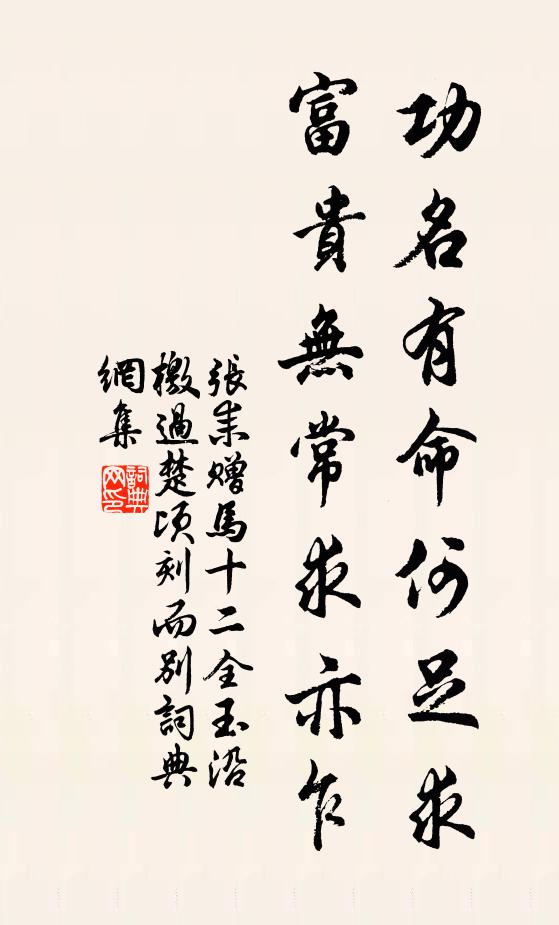 功名有命何足求
富貴無常求亦乍
張耒贈馬十二全玉沿
檄過楚頃刻而別詞典
網集
詞典
網印